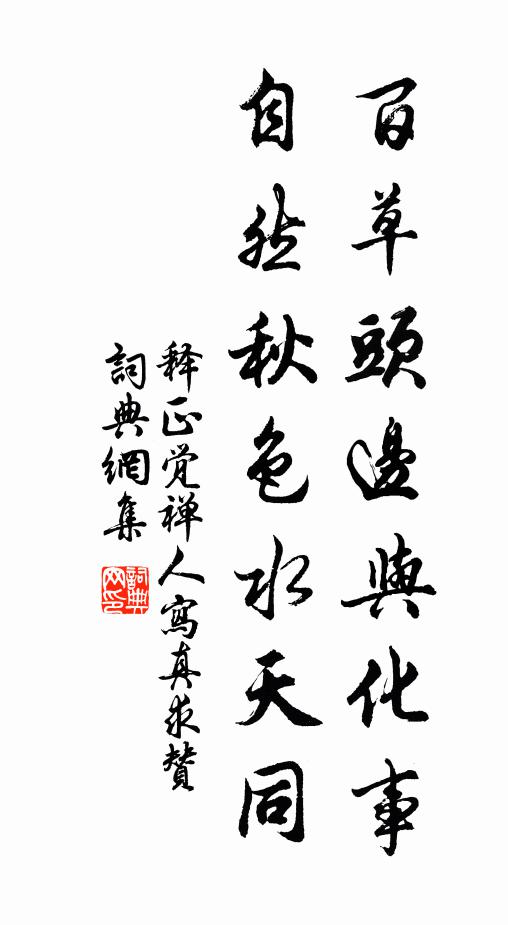 百草頭邊與化事
自然秋色水天同
释正覚禅人寫真求贊
詞典網集
詞典
网印